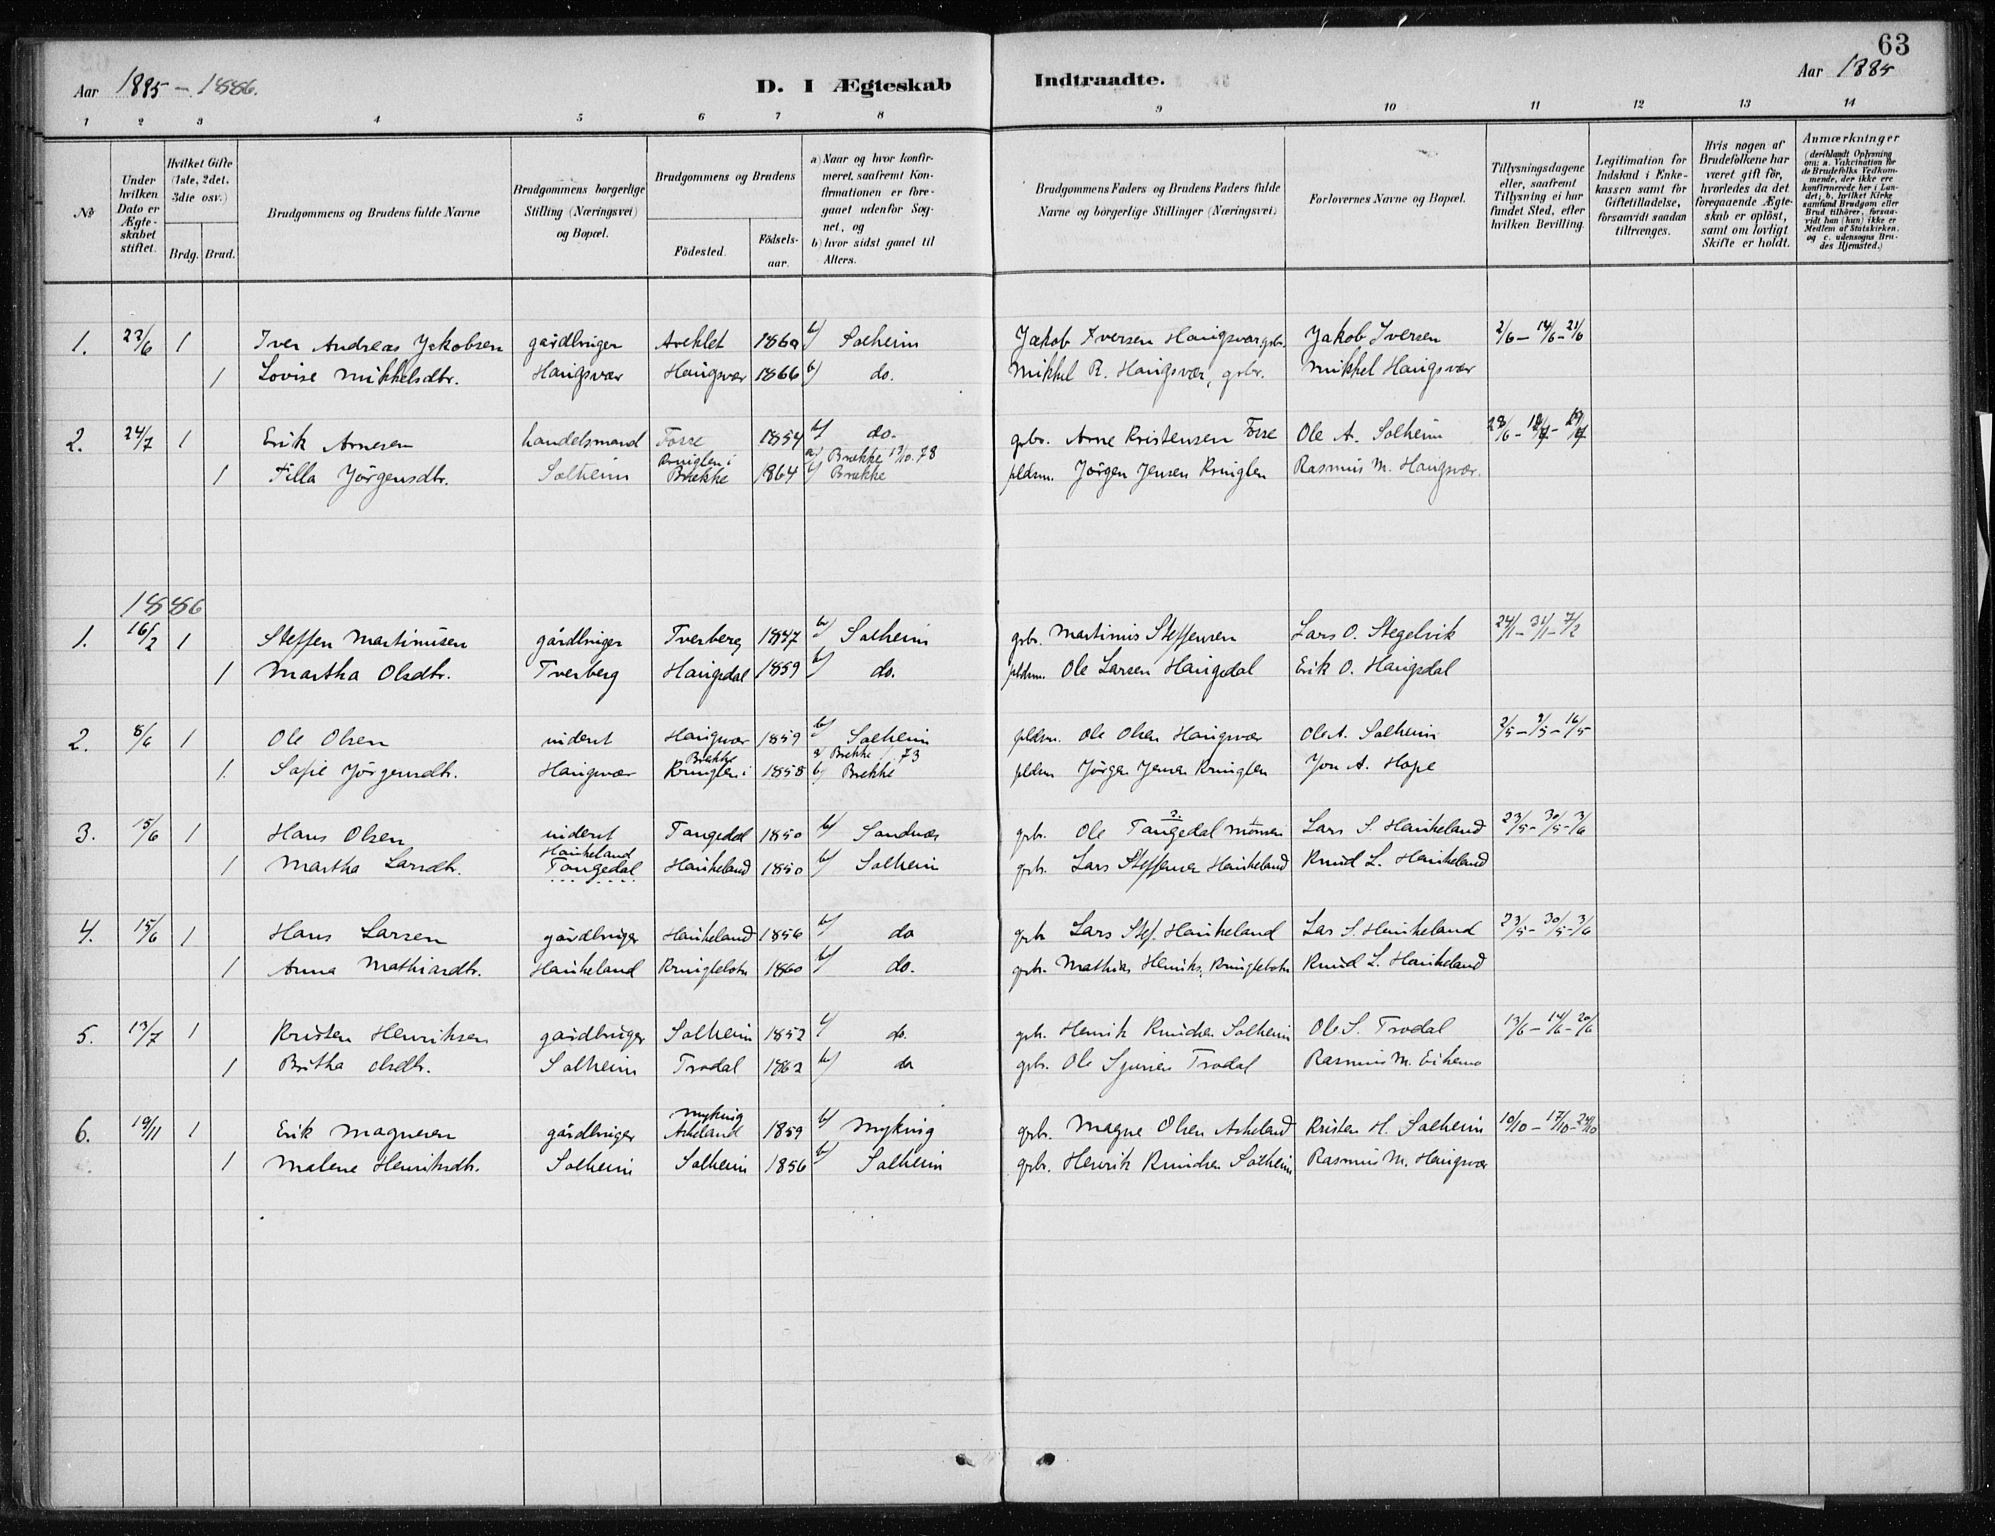 63
Aar 1885 – 1886.
D. I Ægteskab Indtraadte.
Aar 1885
1 2 3 4 5 6 7 8 9 10 11 12 13 14
№
Under hvilken Dato er Ægteskabet stiftet.
Hvilket Gifte (1ste, 2det, 3die osv.)
Brdg. Brud.
Brudgommens og Brudens fulde Navne
Brudgommens borgerlige Stilling (Næringsvei) og Bopæl.
Brudgommens og Brudens
Födested. Födselsaar.
a) Naar og hvor konfirmeret, saafremt Konfirmationen er foregaaet udenfor Sognet, og
b) hvor sidst gaaet til Alters.
Brudgommens Faders og Brudens Faders fulde Navne og borgerlige Stillinger (Næringsvei)
Forlovernes Navne og Bopæl.
Tillysningsdagene eller, saafremt Tillysning ei har fundet Sted, efter hvilken Bevilling.
Legitimation for Indskud i Enkekassen samt for Giftetilladelse, forsaavidt saadan tiltrænges.
Hvis nogen af Brudefolkene har været gift för, hvorledes da det foregaaende Ægteskab er oplöst, samt om lovligt Skifte er holdt.
Anmærkninger (deriblandt Oplysning om: a. Vakcination for de Brudefolks Vedkommende, der ikke ere konfirmerede her i Landet; b. hvilket Kirkesamfund Brudgom eller Brud tilhörer, forsaavidt han (hun) ikke er Medlem af Statskirken, og c. udensogns Brudes Hjemsted.)
1. 22/6 1 Iver Andreas Jakobsen gårdbruger 1860 b/ Solheim Jakob Iversen Haugsvær gbr. Jakob Iversen 2/6 – 14/6 – 21/6
1 Lovise Mikkelsdtr. Haugsvær Haugsvær 1866 b/ do. Mikkel R. Haugsvær, gbr. Mikkel Haugsvær
2. 24/7 1 Erik Arnesen handelsmand Forre 1854 b/ do. gbr. Arne Kristensen Forre Ole A. Solheim
Kringlen i a/ Brække 13/10. 78
1 Filla Jörgensdtr. Solheim Brække 1864 b/ Brække pldsm. Jörgen Jensen Kringlen Rasmus M. Haugsvær.
1886
1. 16/2 1 Steffen Martinusen gårdbruger Tverberg 1847 b/ Solheim gbr. Martinus Steffensen Lars O. Stegelvik 24/1 – 31/1 – 7/2
1 Martha Olsdtr. Tverberg Haugsdal 1859 b/ do. pldsm. Ole Larsen Haugsdal Erik O. Haugsdal
2. 8/6 1 Ole Olsen inderst Haugsvær 1859 b/ Solheim pldsm. Ole Olsen Haugsvær Ole A. Solheim 2/5 – 9/5 – 16/5
Brække a/ Brække / 73
1 Sofie Jörgensdtr. Haugsvær Kringlen i 1858 b/ Brække pldsm. Jörgen Jensen Kringlen Jon A. Hope
3. 15/6 1 Hans Olsen inderst Tangedal 1850 b/ Sandnæs gbr. Ole Tangedal Lars S. Haukeland 23/5 – 30/5 – 3/6
Haukeland
1 Martha Larsdtr. Tangedal Haukeland 1850 b/ Solheim gbr. Lars Steffensen Haukeland Knud L. Haukeland
4. 15/6 1 Hans Larsen gårdbruger Haukeland 1856 b/ do gbr Lars Stef. Haukeland Lars S. Haukeland 23/5 – 30/5 – 3/6
1 Anna Mathiasdtr. Haukeland Kringlebotn 1860 b/ do. gbr. Mathias Henriks. Kringlebotn Knud L. Haukeland
5. 13/7 1 Kristen Henriksen gårdbruger Solheim 1852 b/ do. gbr. Henrik Knudsen Solheim Ole S. Trodal 13/6 – 14/6 – 20/6
1 Britha Olsdtr. Solheim Trodal 1862 b/ do gbr. Ole Sjursen Trodal Rasmus M. Eikemo
Myking
6. 19/11 1 Erik Magnesen gårdbruger Askeland 1859 b/ Myking gbr. Magne Olsen Askeland Kristen H. Solheim 10/10 – 17/10 – 24/10
1 Malene Henriksdtr. Solheim Solheim 1856 b/ Solheim gbr. Henrik Knudsen Solheim Rasmus M. Haugsvær